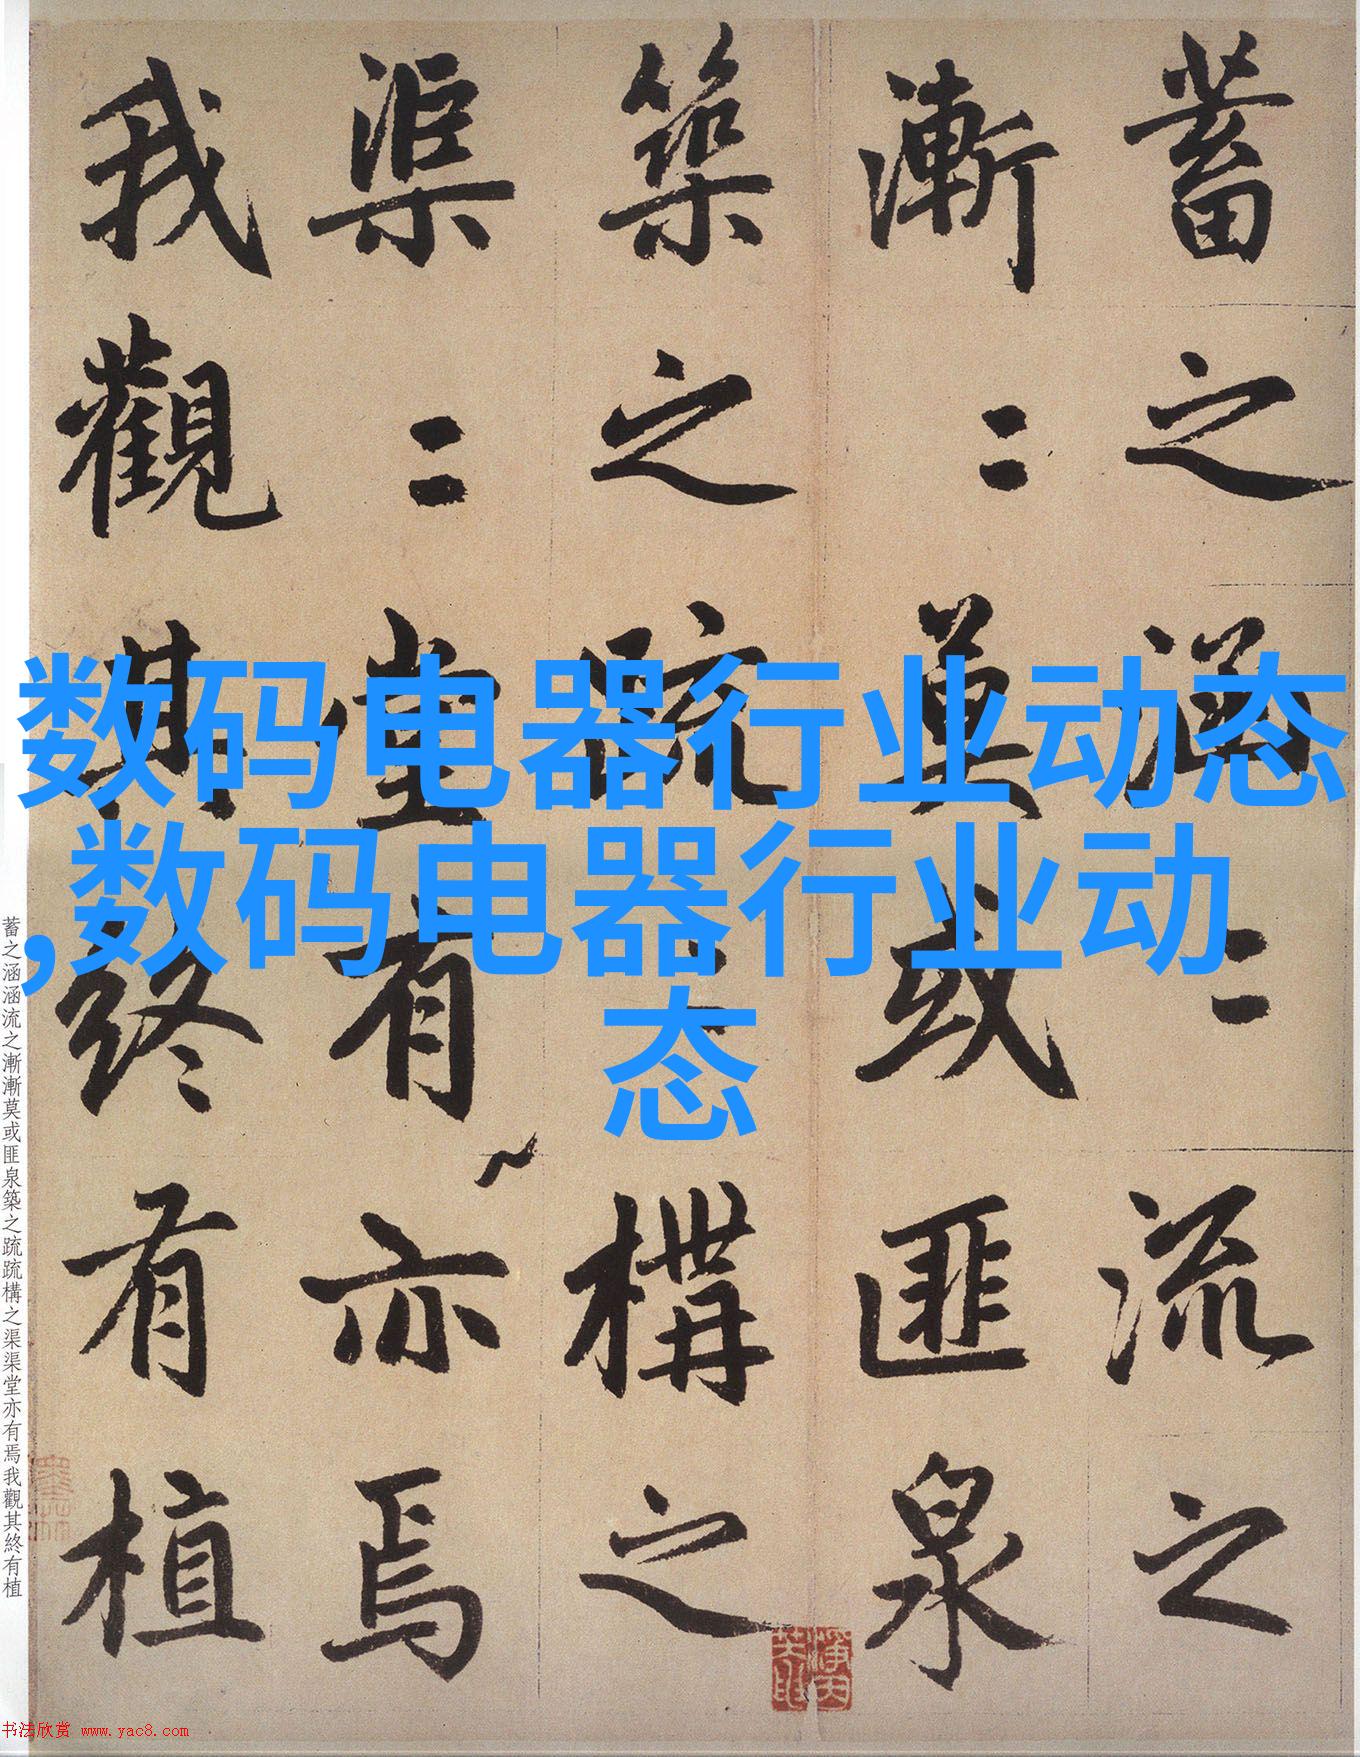 蓄之涵〻流之
漸〻莫或匪泉
築之疏〻構之
渠〻堂有亦焉
我觀其終有植
数码电器行业动态
,数码电器行业动
态
蓄之涵涵流之漸漸莫或匪泉築之疏疏構之渠渠堂亦有焉我觀其終有植
书法欣赏 www.yac8.com